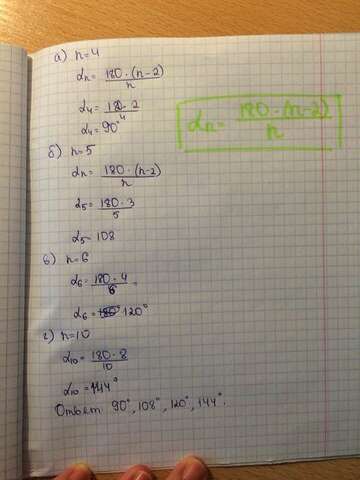 а) n=4
αn = 180·(n-2)/n
α4 = 180·2/4
α4 = 90°
αn = 180·(n-2)/n
б) n=5
αn = 180·(n-2)/n
α5 = 180·3/5
α5 = 108
в) n=6
α6 = 180·4/6
α6 = 120°
г) n=10
α10 = 180·8/10
α10 = 144°
Ответ 90°, 108°, 120°, 144°.